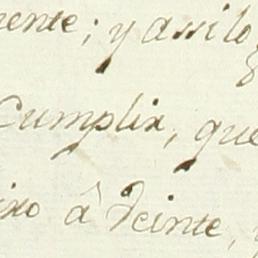 mente; y assi lo
Cumplix, que
ixo â Veinte,